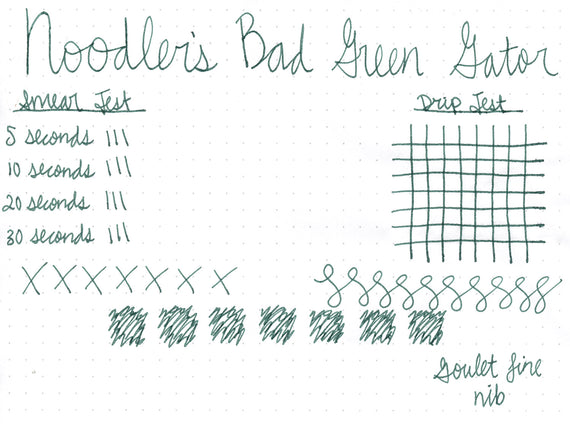 Noodler's Bad Green Gator
Smear Test
Drip Test
5 seconds |||
10 seconds |||
20 seconds |||
30 seconds |||
X X X X X X X
Goulet fine
nib